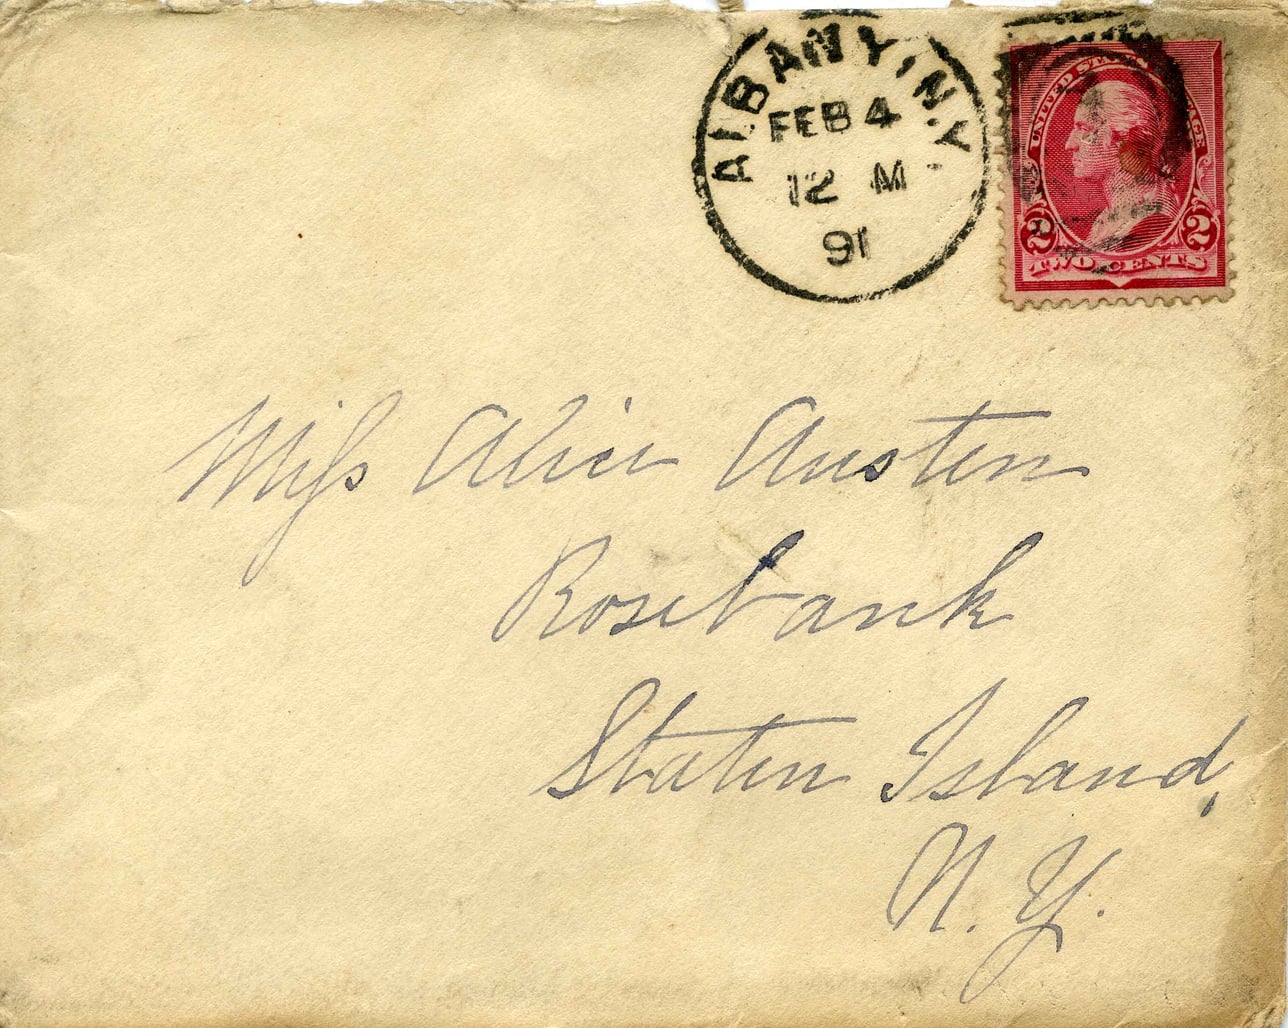 ALBANY, N.Y.
FEB 4
12 M
91
UNITED STATES POSTAGE
2 2
TWO CENTS
Miss Alice Austen
Rosebank
Staten Island,
N. Y.